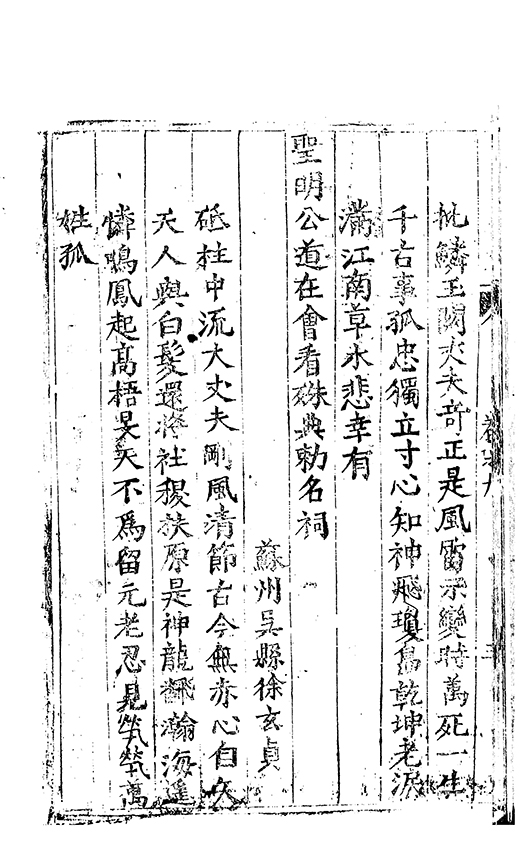 卷之九
批鱗玉闕丈夫奇正是風雷示變時萬死一生
千古事孤忠獨立寸心知神飛瓊島乾坤老淚
滿江南草木悲幸有
聖明公道在會看殊典勅名祠
蘇州吳縣徐玄貞
砥柱中流大丈夫剛風清節古今無赤心自久
天人與白髮還將社稷扶原是神龍翻瀚海遥
憐鳴鳳起高梧旻天不爲留元老忍見煢煢萬
姓孤